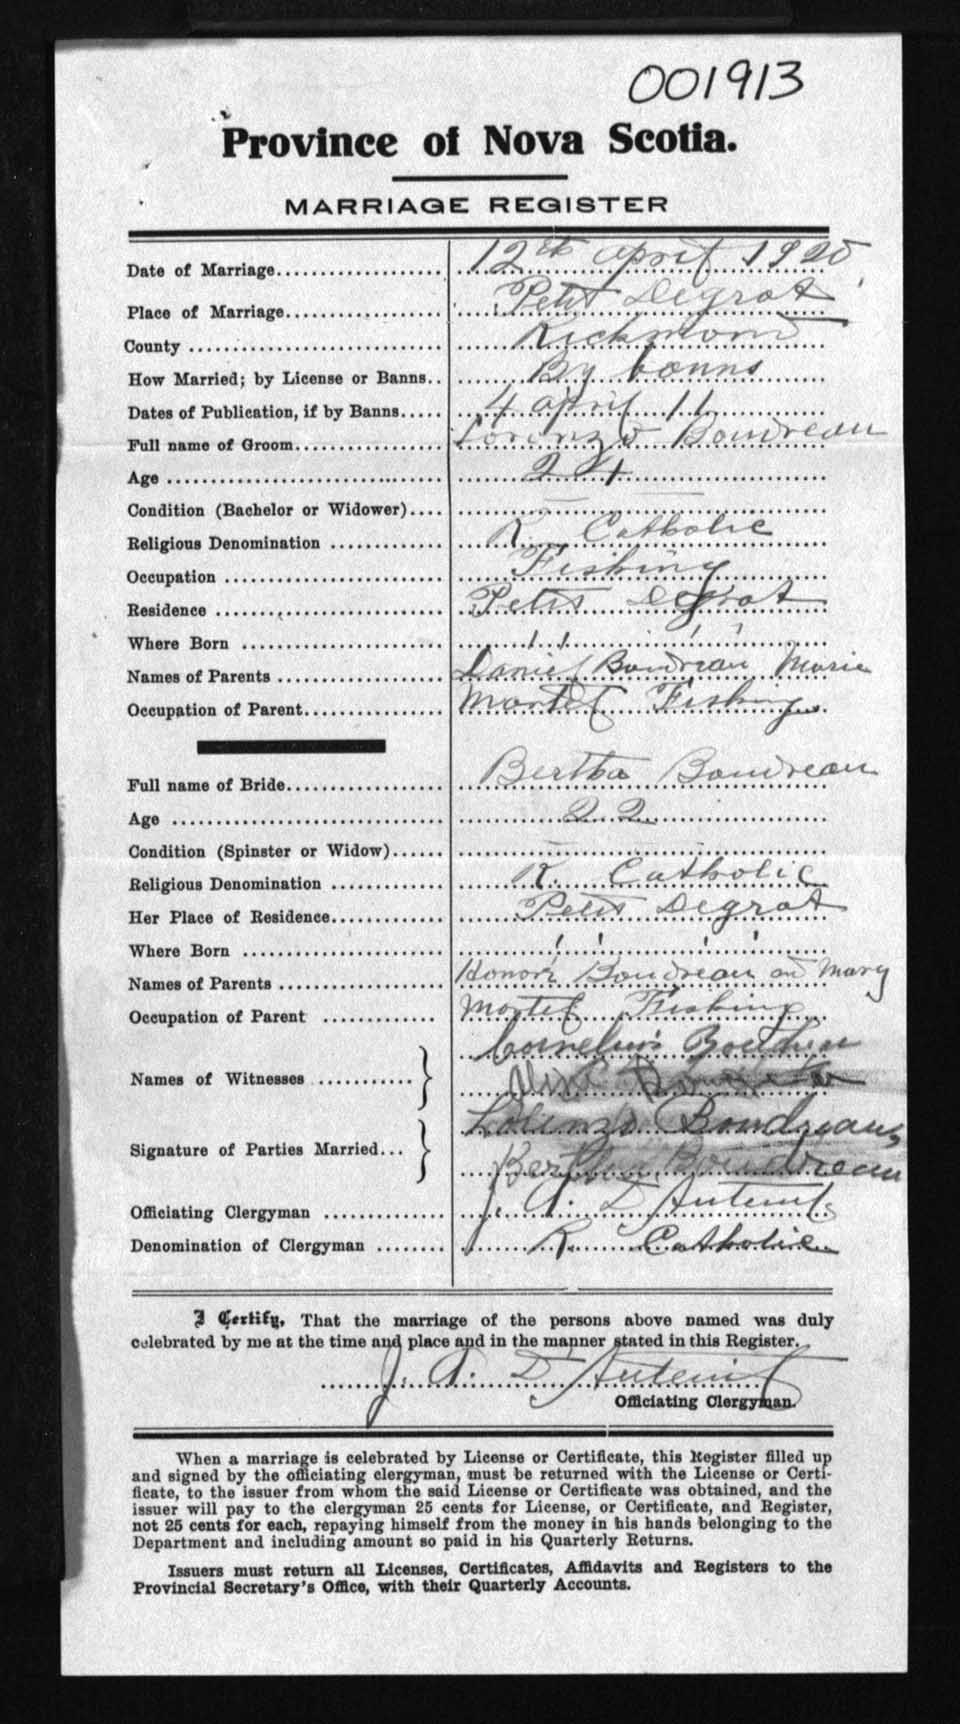 001913
Province of Nova Scotia.
MARRIAGE REGISTER
Date of Marriage.................... 12th april 1920
Place of Marriage.................. Petit Degrat
County ............................. Richmond
How Married; by License or Banns.. By banns
Dates of Publication, if by Banns..... 4 april 11
Full name of Groom................. Lorenzo Boudreau
Age ................................ 24
Condition (Bachelor or Widower).... —
Religious Denomination ............. R. Catholic
Occupation ......................... Fishing
Residence .......................... Petit Degrat
Where Born ....................... '' ''
Names of Parents ................... Daniel Boudreau Marie
Occupation of Parent................ Martel Fishing
Full name of Bride.................. Bertha Boudreau
Age ............................... 22
Condition (Spinster or Widow)...... —
Religious Denomination ............. R. Catholic
Her Place of Residence............. Petit Degrat
Where Born ....................... '' ''
Names of Parents ................... Honoré Boudreau and Mary
Occupation of Parent ............. Martel Fishing
Cornelius
Names of Witnesses ...........
Lorenzo Boudreau
Signature of Parties Married...
Bertha Boudreau
Officiating Clergyman .............. J. A. D'Auteuil
Denomination of Clergyman ........ R. Catholic
I Certify, That the marriage of the persons above named was duly
celebrated by me at the time and place and in the manner stated in this Register.
J. A. D'Auteuil
Officiating Clergyman.
When a marriage is celebrated by License or Certificate, this Register filled up
and signed by the officiating clergyman, must be returned with the License or Certi-
ficate, to the issuer from whom the said License or Certificate was obtained, and the
issuer will pay to the clergyman 25 cents for License, or Certificate, and Register,
not 25 cents for each, repaying himself from the money in his hands belonging to the
Department and including amount so paid in his Quarterly Returns.
Issuers must return all Licenses, Certificates, Affidavits and Registers to the
Provincial Secretary's Office, with their Quarterly Accounts.